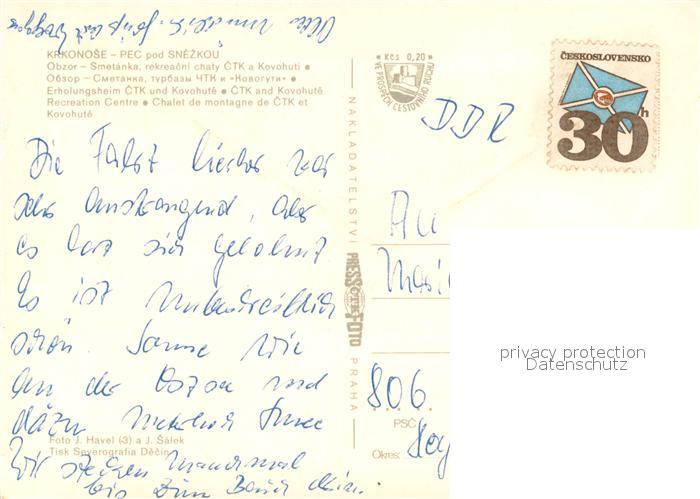 KRKONOŠE – PEC pod SNĚŽKOU
Obzor – Smetánka, rekreační chaty ČTK a Kovohuti ●
Обзор – Сметанка, турбазы ЧТК и «Новогути» ●
Erholungsheim ČTK und Kovohutě ● ČTK and Kovohutě
Recreation Centre ● Chalet de montagne de ČTK et
Kovohutě
Die Fahrt hierher war
sehr anstrengend, aber
es hat sich gelohnt
Es ist unbeschreiblich
schön. Sonne wie
an der Ostsee und
dazu
Foto J. Havel (3) a J. Šálek
Tisk Severografia Děčín
Wir stecken manchmal
bis zum Bauch drin.
NAKLADATELSTVÍ
PRESSFOTO
ČTK
PRAHA
Kčs 0,20
VE PROSPĚCH CESTOVNÍHO RUCHU
ČESKOSLOVENSKO
30h
DDR
An
806
PSČ
Okres:
privacy protection
Datenschutz